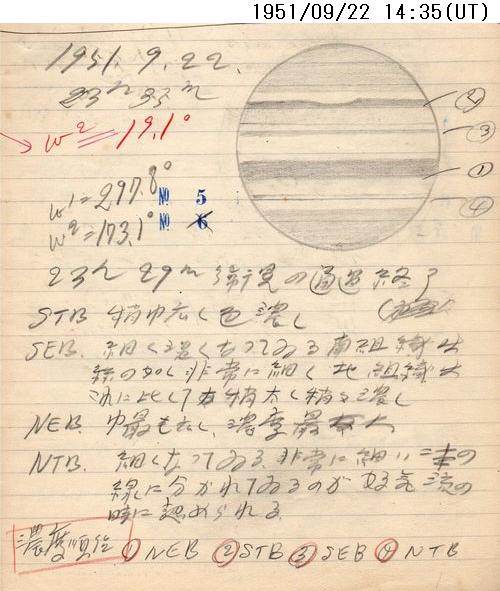 1951/09/22 14:35(UT)
1951. 9. 22.
23h 35m
ω2 = 19.1°
②
③
①
④
ω1 = 297.8° No 5
ω2 = 173.1° No 6
23h 29m の通過終了
STB 稍巾広く色濃し
SEB. 細く濃くなつてゐる南組織は
糸の如く非常に細く北組織は
次に比して稍太く稍々濃し
NEB. 巾最も広し、濃度最大
NTB. 細くなつてゐる。非常に細い二本の
線に分かれてゐるのが好気流の
時に認められる.
濃度順位 ① NEB ② STB ③ SEB ④ NTB